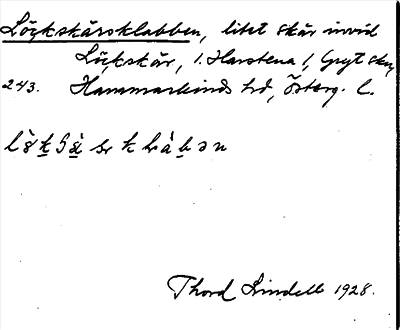 Löckskärsklabben, litet skär invid
Löckskär, 1. Harstena 1, Gryt skn,
243. Hammarkinds hd, Österg. L.
Thord Lindell 1928.